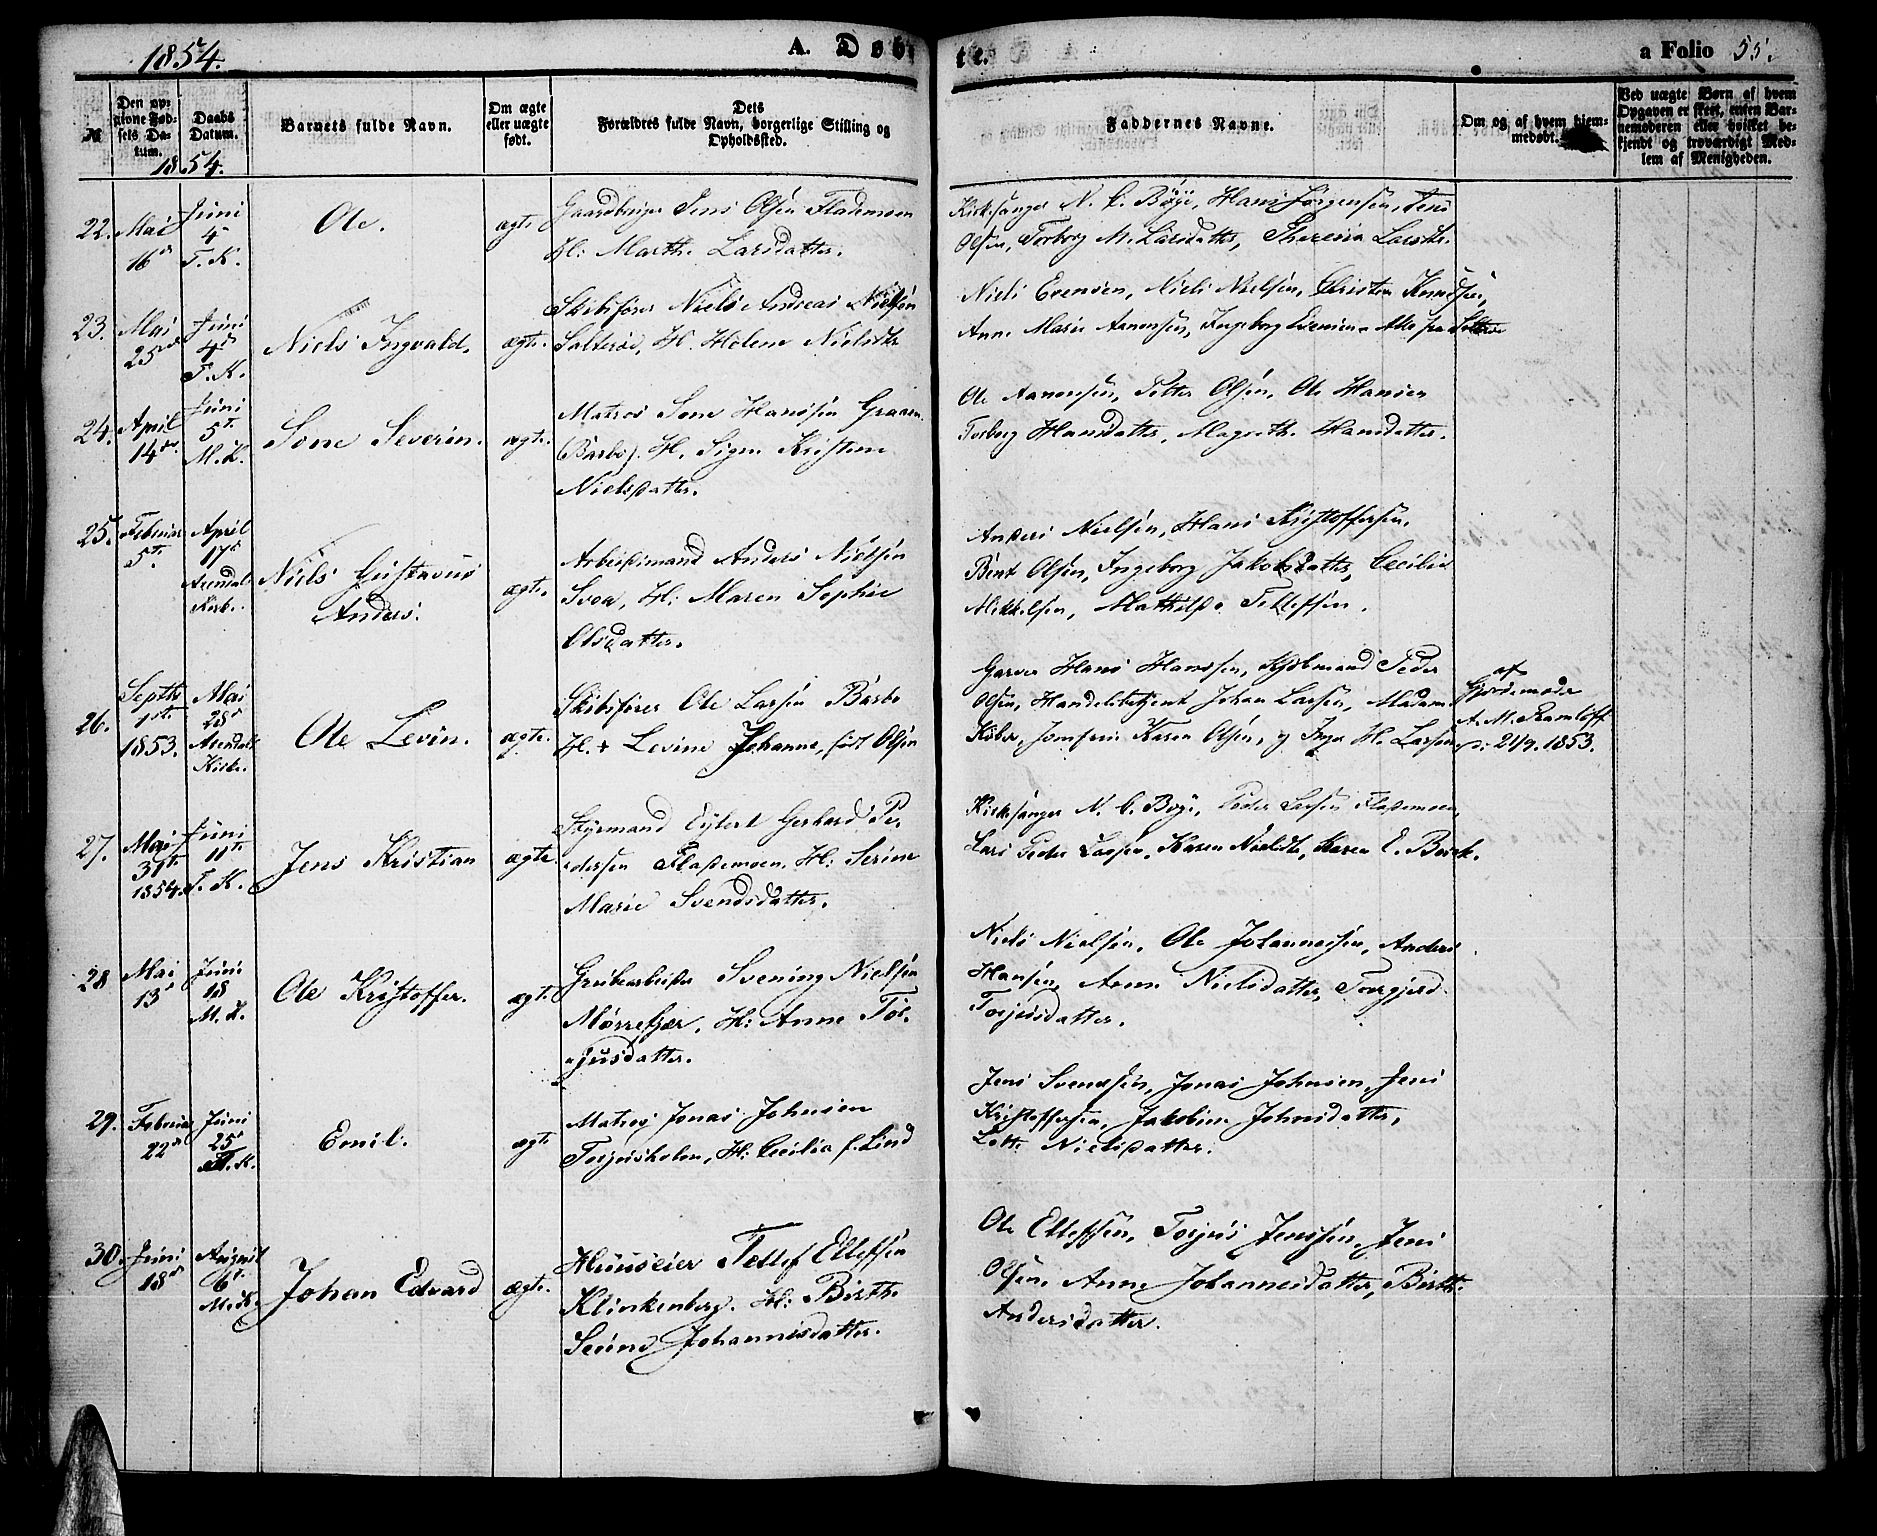 1854.
A. Døb-
te.
a Folio 55.
№
Den op-
givne Fød-
sels Da-
tum.
Daabs
Datum.
1854.
Barnets fulde Navn.
Om ægte
eller uægte
født.
Dets
Forældres fulde Navn, borgerlige Stilling og
Opholdssted.
Faddernes Navne.
Om og af hvem hjem-
medøbt.
Ved uægte Børn af hvem
Opgaven er skeet, enten Bar-
nemoderen eller hvilket be-
kjendt og troværdigt Med-
lem af Menigheden.
22. Mai
16
Juni
4
T. K.
Ole.
ægte
Jens Olsen Flademoen
H: Marthe Larsdatter.
Kirkesanger N. C. Bøye, Hans Jørgensen, Jens
Olsen, Torborg M. Larsdatter, Theresia Larsdtr.
23. Mai
25
Juni
4
T. K.
Niels Ingvald.
ægte.
Skibsfører Niels Andreas Nielsen
Salterøe, H. Helene Nielsdtr
Niels Evensen, Niels Nielsen, Christen Knudsen,
Anne Marie Aanonsen, Ingeborg Evensen Alle fra Salterøe
24. April
14de
Juni
5te
M. K.
Sone Severin.
ægte.
Matros Sone Hansen
(Barbo). H. Signe Kristine
Nielsdatter.
Ole Aanonsen, Petter Olsen, Ole Hansen
Torborg Hansdatter, Magrethe Hansdatter.
25. Februar
5te
April
17
Arendal
Kirke.
Niels Gustavus
Anders.
ægte.
Arbeidsmand Anders Nielsen
H: Maren Sophie
Olsdatter.
Anders Nielsen, Hans Kristoffersen,
Bent Olsen, Ingeborg Jakobsdatter, Cecilie
Mikkelsen, Mathilde Tellefsen.
26.
Septbr
1ste
1853.
Mai
28
Arendals
Kirke.
Ole Levin.
ægte.
Skibsfører Ole Larsen Barbo
H. + Levine Johanne, født Olsen
Garver Hans Hanssen, Peder
Olsen, Johan Larsen, Madam
Jomfru Karen Olsen, og Inger H. Larsen
af
Gjordemoder
A. M. Ramloff
21/9. 1853.
27. Mai
31te
1854.
Juni
11te
T. K.
Jens Kristian
ægte
Styrmand Eylert Gerhard Pe-
dersen Flademoen, H: Serine
Marie Svendsdatter.
Kirkesanger N. C. Bøye, Peder Larsen Flademoen,
Lars Peder Larsen, Karen Nielsdtr, Karen E. Beck.
28 Mai
13
Juni
18
M. K.
Ole Kristoffer.
ægte
Grubearbeider Svening Nielsen
Mørrefjær, H: Anne Tor-
jusdatter.
Niels Nielsen, Ole Johannesen, Anders
Hansen, Anne Nielsdatter, Torgjerd
Torjusdatter.
29. Februar
22
Juni
25
K.
Emil.
ægte
Matros Jonas Johnsen
Torjusholm, H: Cecilia f. Lind
Jens Svendsen, Jonas Johnsen, Jens
Kristoffersen, Jakobine Johnsdatter,
Nielsdatter.
30. Juni
18
August
6
M. K.
Johan Edvard
ægte.
Huuseier Tellef Ellefsen
Klinkenberg. H: Birthe
Johannesdatter.
Ole Ellefsen, Torjus Jenssen, Jens
Olsen Anne Johannesdatter, Birthe
Andersdatter.